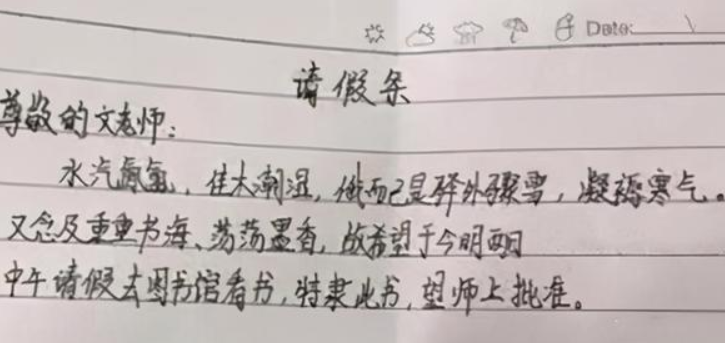 Date:
请假条
尊敬的文老师：
水汽氤氲，佳木潮湿，俄而已是驿外骤雪，凝稿寒气。
又念及重重书海、荡荡墨香，故希望于今明两日
中午请假去图书馆看书，特隶此书，望师上批准。